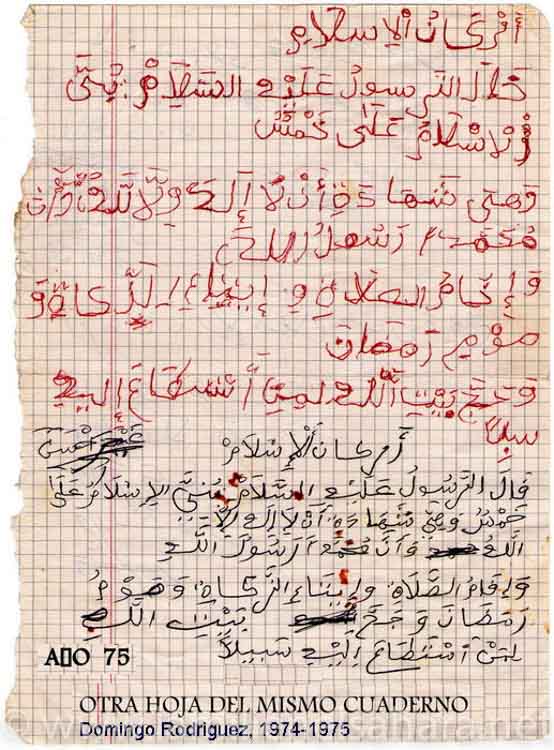 أركان الإسلام
قال الرسول عليه السلام بني
الإسلام على خمس
وهي شهادة أن لا إله إلا الله وأن
محمد رسول الله
وإقام الصلاة وإيتاء الزكاة و
صوم رمضان
وحج بيت الله لمن أستطاع إليه
سبيلا
أركان الإسلام
قال الرسول عليه السلام بني الإسلام على
خمس وهي شهادة أن لا إله إلا
الله وأن محمد ارسول الله
وإقام الصلاة وإيتاء الزكاة وصوم
رمضان وحج بيت الله
لمن استطاع إليه سبيلا
A□O 75
OTRA HOJA DEL MISMO CUADERNO
Domingo Rodriguez, 1974-1975